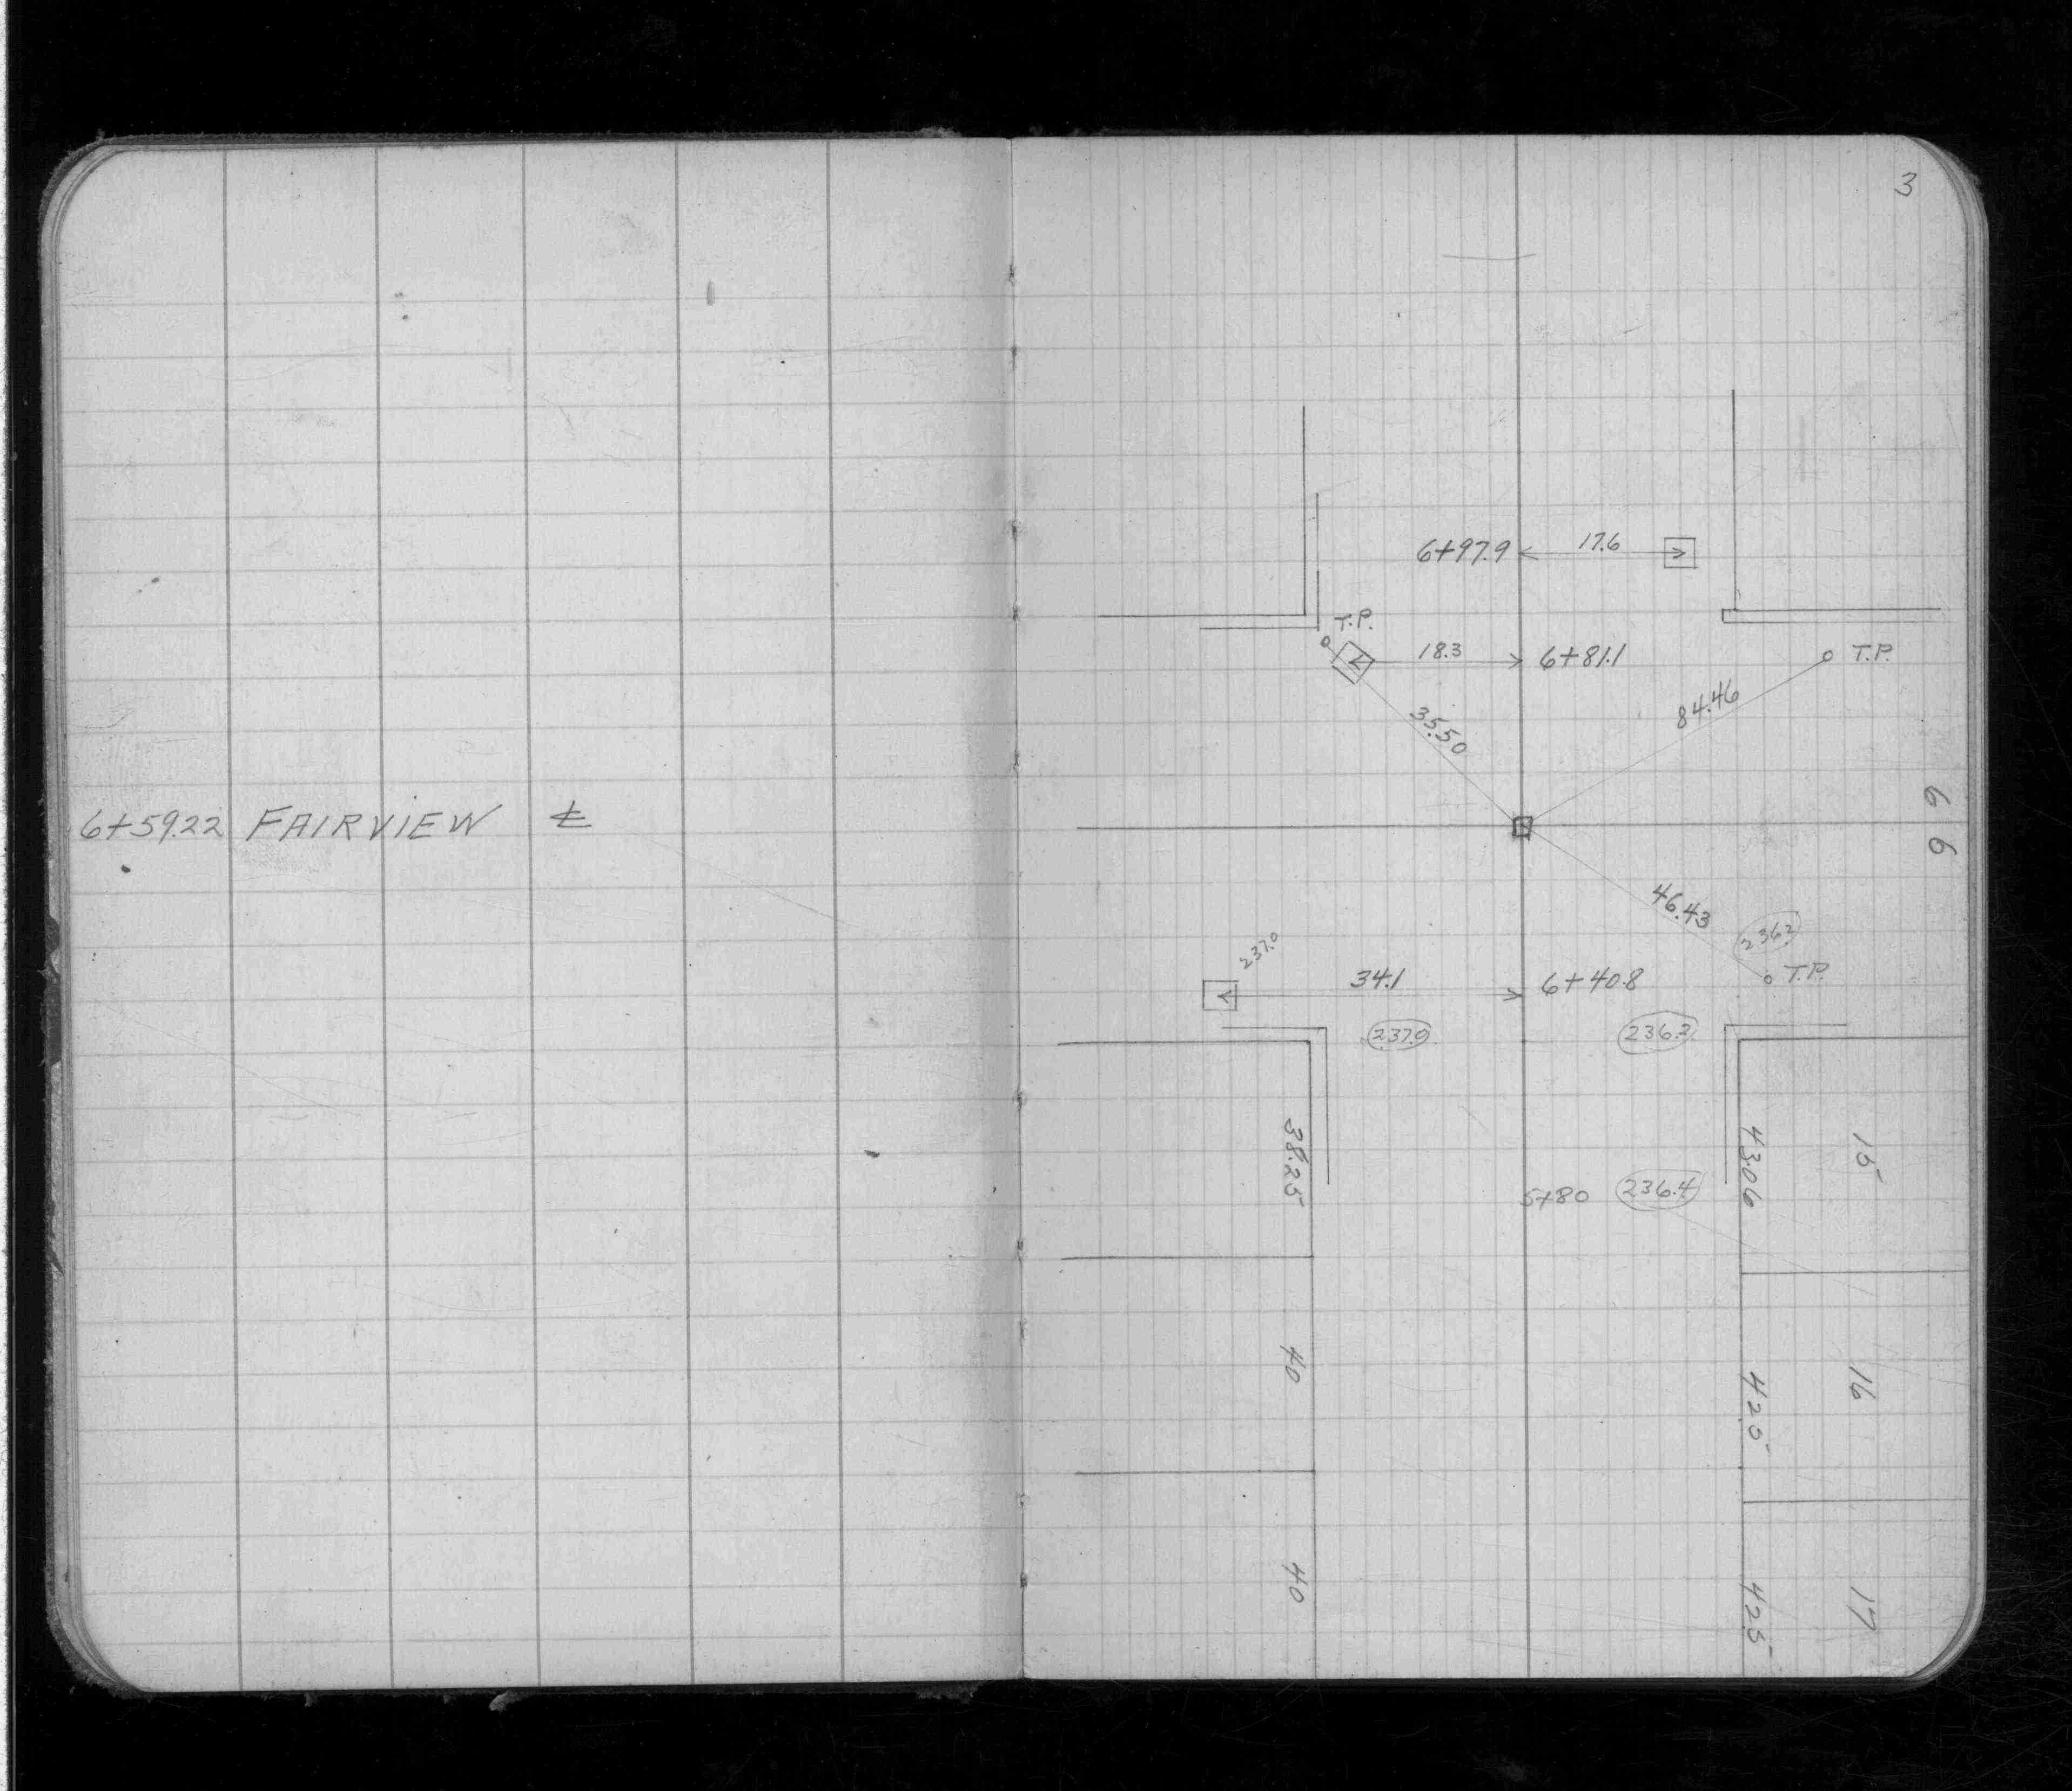 3
6+97.9 17.6
T.P.
18.3 6+81.1
T.P.
35.50
84.46
66
6+59.22 FAIRVIEW ℄
46.43
236.2
T.P.
237.0
34.1 6+40.8
237.0
236.3
38.25
43.06
15
5+80 236.4
40
42.5
16
40
42.5
17